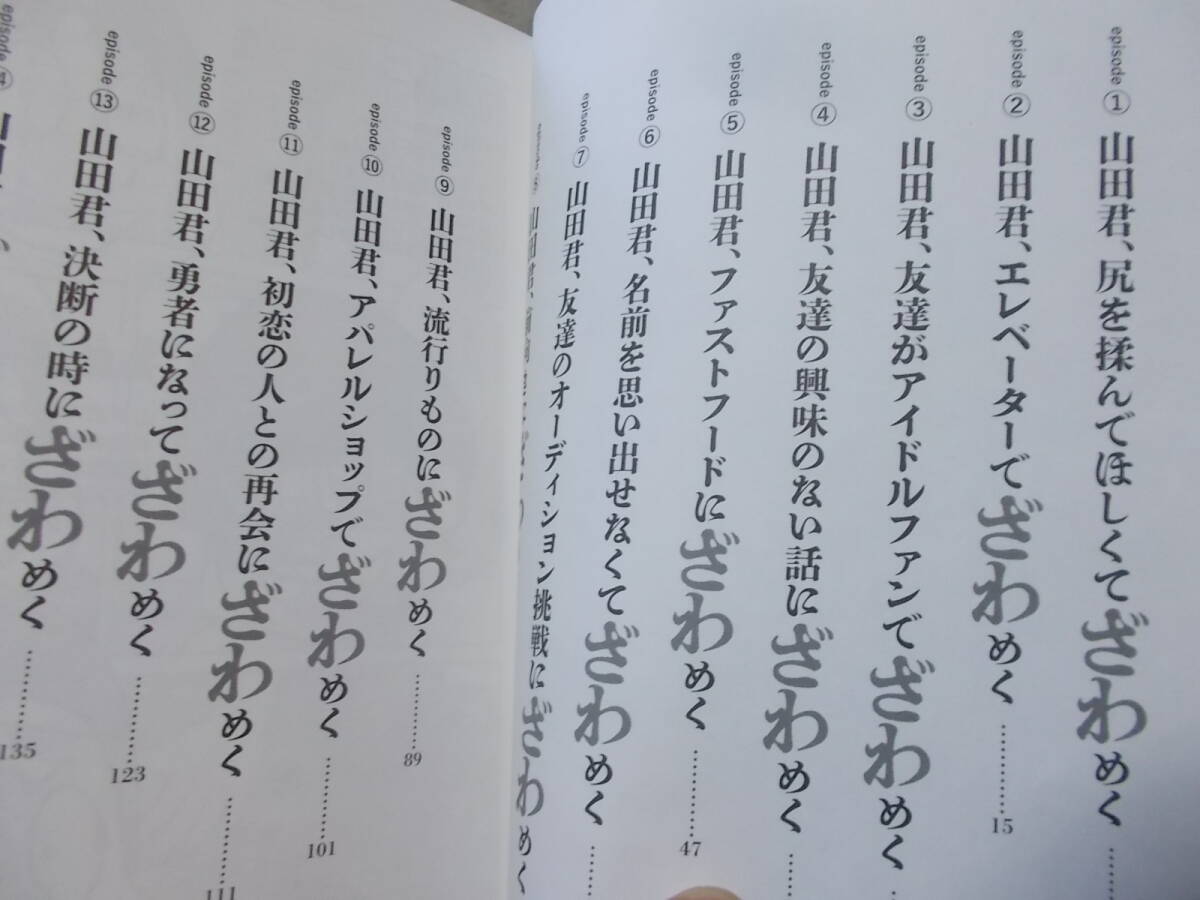 episode① 山田君、尻を揉んでほしくてざわめく…………
episode② 山田君、エレベーターでざわめく…………15
episode③ 山田君、友達がアイドルファンでざわめく
episode④ 山田君、友達の興味のない話にざわめく……
episode⑤ 山田君、ファストフードにざわめく…………47
episode⑥ 山田君、名前を思い出せなくてざわめく……
episode⑦ 山田君、友達のオーディション挑戦にざわめく
山田君、
episode⑨ 山田君、流行りものにざわめく…………89
episode⑩ 山田君、アパレルショップでざわめく…………101
episode⑪ 山田君、初恋の人との再会にざわめく…………111
episode⑫ 山田君、勇者になってざわめく…………123
episode⑬ 山田君、決断の時にざわめく…………135
episode⑭